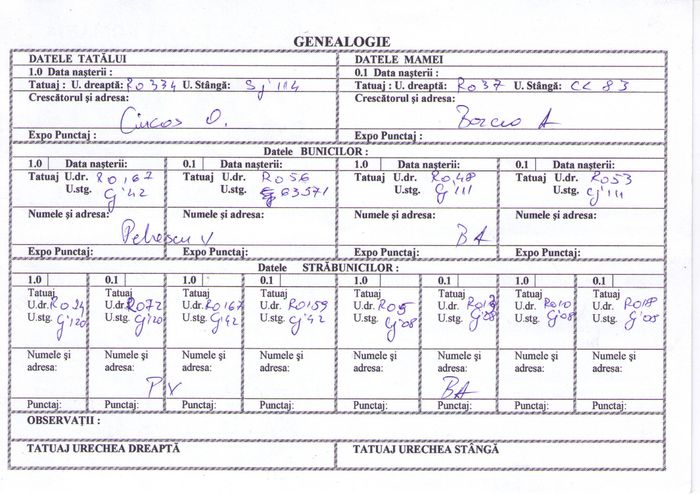 GENEALOGIE
DATELE TATĂLUI DATELE MAMEI
1.0 Data nașterii : 0.1 Data nașterii :
Tatuaj : U. dreaptă: RO 334 U. Stângă: Sj'114 Tatuaj : U. dreaptă: RO 37 U. Stângă: CC 83
Crescătorul și adresa: Crescătorul și adresa:
D. A
Expo Punctaj : Expo Punctaj :
Datele BUNICILOR :
1.0 Data nașterii: 0.1 Data nașterii: 1.0 Data nașterii: 0.1 Data nașterii:
Tatuaj U.dr. RO 167 Tatuaj U.dr. RO 56 Tatuaj U.dr. RO 48 Tatuaj U.dr. RO 53
U.stg. G'42 U.stg. 63571 U.stg. G'111 U.stg. G'111
Numele și adresa: Numele și adresa: Numele și adresa: Numele și adresa:
Petrescu V BA
Expo Punctaj: Expo Punctaj: Expo Punctaj: Expo Punctaj:
Datele STRĂBUNICILOR :
1.0 0.1 1.0 0.1 1.0 0.1 1.0 0.1
Tatuaj Tatuaj Tatuaj Tatuaj Tatuaj Tatuaj Tatuaj Tatuaj
U.dr. RO 94 U.dr. RO 72 U.dr. RO 167 U.dr. RO 159 U.dr. RO 5 U.dr. U.dr. RO 10 U.dr.
U.stg. G'120 U.stg. G'120 U.stg. G'42 U.stg. G'42 U.stg. G'08 U.stg. G'08 U.stg. G'08 U.stg. G'05
Numele și Numele și Numele și Numele și Numele și Numele și Numele și Numele și
adresa: adresa: adresa: adresa: adresa: adresa: adresa: adresa:
P V BA
Punctaj: Punctaj: Punctaj: Punctaj: Punctaj: Punctaj: Punctaj: Punctaj:
OBSERVAȚII :
TATUAJ URECHEA DREAPTĂ TATUAJ URECHEA STÂNGĂ